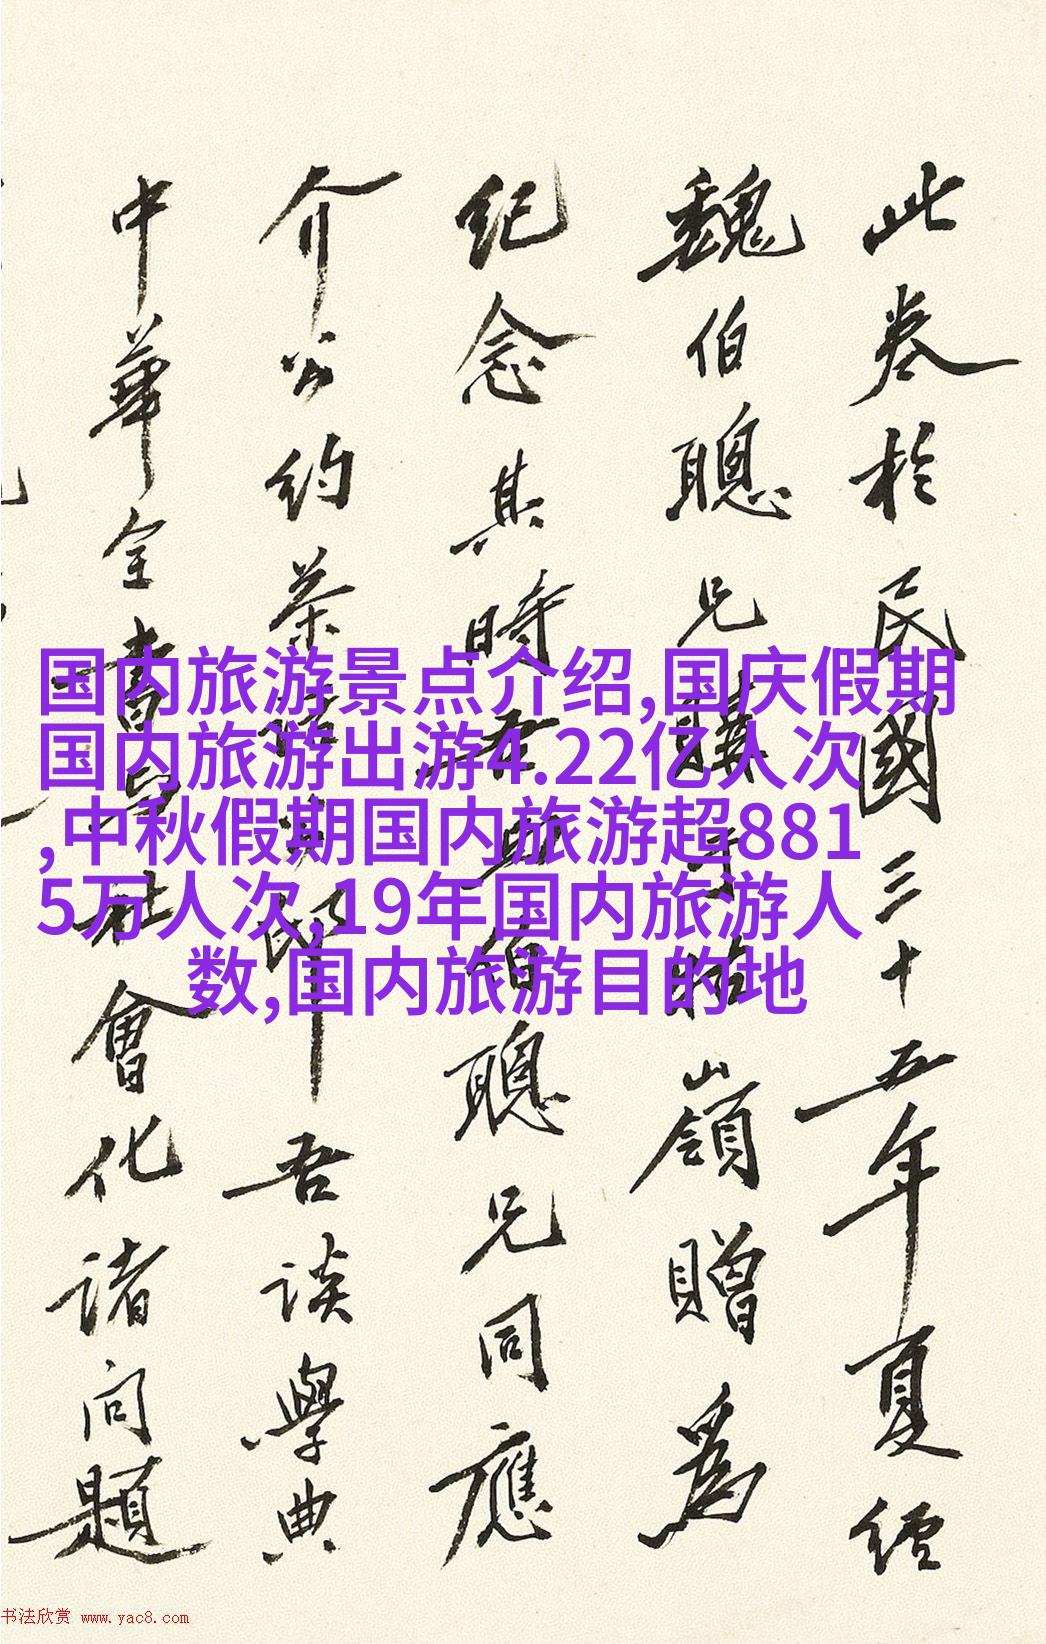 此卷於民國三十五年夏經
魏伯聰兄購于牯嶺贈為
紀念其時吾與伯聰兄同應
介公約茶邸吾談學典
中華全書與社會化諸問題
国内旅游景点介绍,国庆假期
国内旅游出游4.22亿人次
,中秋假期国内旅游超881
5万人次,19年国内旅游人
数,国内旅游目的地
书法欣赏 www.yac8.com